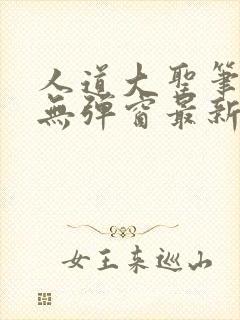 人道大聖筆
無彈窗最新
女王來巡山